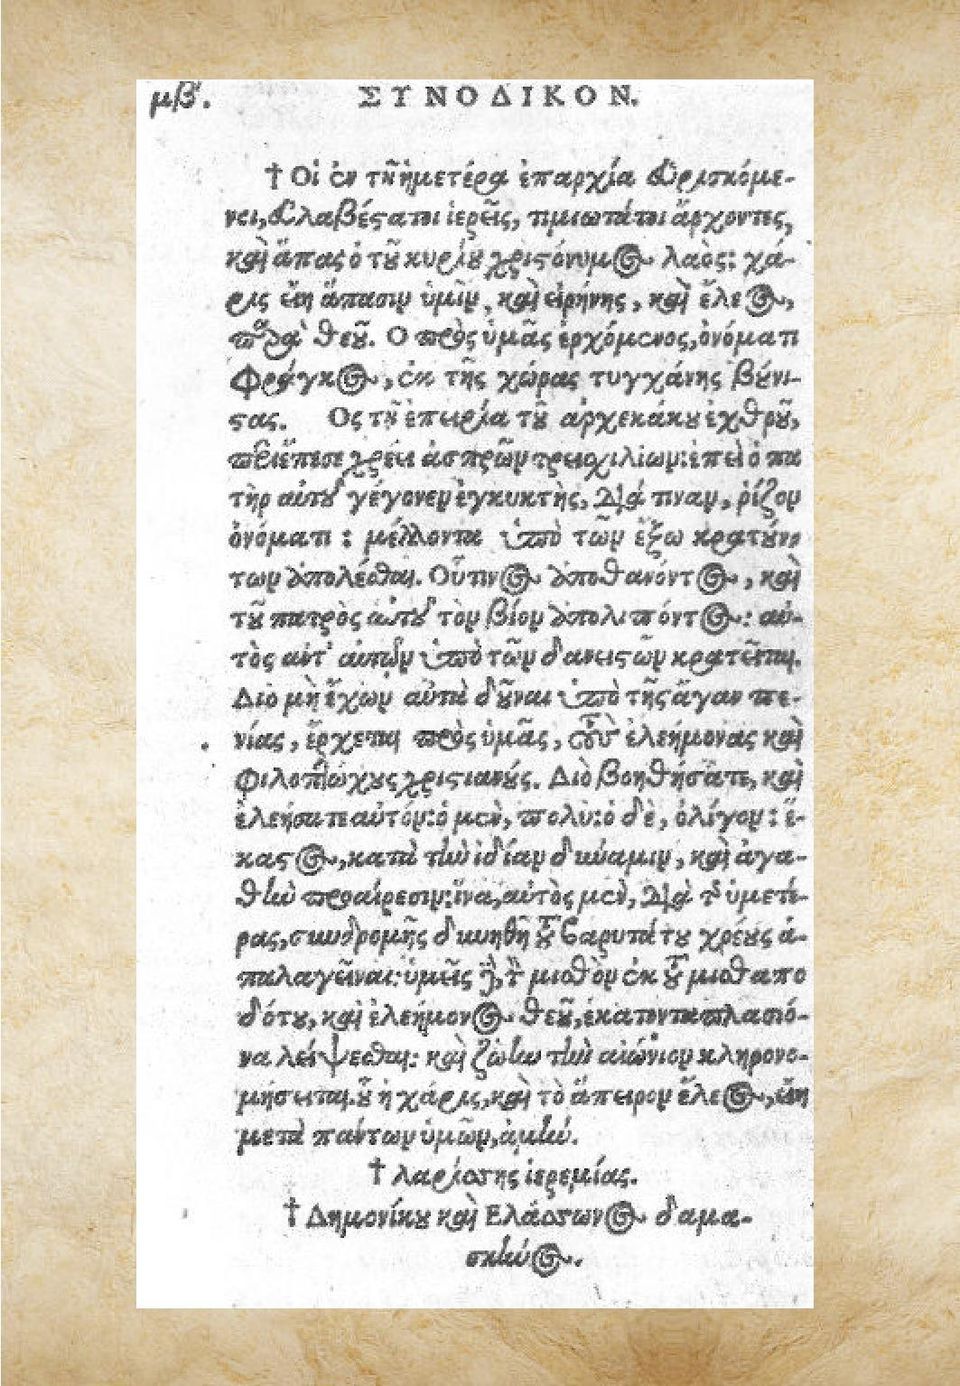 μβʹ. ΣΥΝΟΔΙΚΟΝ.
† Οἱ ἐν τῇ ἡμετέρᾳ ἐπαρχίᾳ εὑρισκόμε-
νοι, εὐλαβέστατοι ἱερεῖς, τιμιώτατοι ἄρχοντες,
καὶ ἅπας ὁ τοῦ κυρίου χριστόνυμος λαὸς: χά-
ρις εἴη ἅπασιν ὑμῖν, καὶ εἰρήνης, καὶ ἔλεος,
παρὰ θεοῦ. Ο πρὸς ὑμᾶς ἐρχόμενος, ὀνόματι
Φράγκος, ἐκ τῆς χώρας τυγχάνης βούνι-
στας. Ος τῇ ἐπειρίᾳ τοῦ ἀρχεκάκου ἐχθροῦ,
περιέπεσε χρέει ἀσπρῶν τρισχιλίων: ἐπεὶ ὁ πα
τὴρ αὐτοῦ γέγονεν ἐγκυκτὴς, διά τιναν, ῥίζον
ὀνόματι: μέλλοντα ὑπὸ τῶν ἔξω κρατούν
των ἀπολέσθαι. Οὗτινος ἀποθανόντος, καὶ
τοῦ πατρὸς αὐτοῦ τὸν βίον ἀπολιπόντος: αὐ-
τὸς ἀντ' αὐτῶν ὑπὸ τῶν δανειστῶν κρατεῖται.
Διὸ μὴ ἔχων αὐτὰ δοῦναι ὑπὸ τῆς ἄγαν πε-
νίας, ἔρχεται πρὸς ὑμᾶς, τοὺς ἐλεήμονας καὶ
φιλοπτώχους χριστιανούς. Διὸ βοηθήσατε, καὶ
ἐλεήσατε αὐτόν: ὁ μὲν, πολύ: ὁ δὲ, ὀλίγον: ἕ-
καστος, κατὰ τὴν ἰδίαν δύναμιν, καὶ ἀγα-
θὴν προαίρεσιν: ἵνα, αὐτὸς μὲν, διὰ τῆς ὑμετέ-
ρας, συνδρομῆς δυνηθῇ τοῦ βαρυτάτου χρέους ἀ-
παλαγεῖναι: ὑμεῖς δὲ, τὸν μισθὸν ἐκ τοῦ μισθαπο
δότου, καὶ ἐλεήμονος θεοῦ, ἑκατονταπλασιό-
να λείψεσθαι: καὶ ζωὴν τὴν αἰώνιον κληρονο-
μήσειται. οὗ ἡ χάρις, καὶ τὸ ἄπειρον ἔλεος, εἴη
μετὰ πάντων ὑμῶν, ἀμήν.
† λαρίσσης ἱερεμίας.
† Δημονίκου καὶ Ελάσσωνος δαμα-
σκηνός.